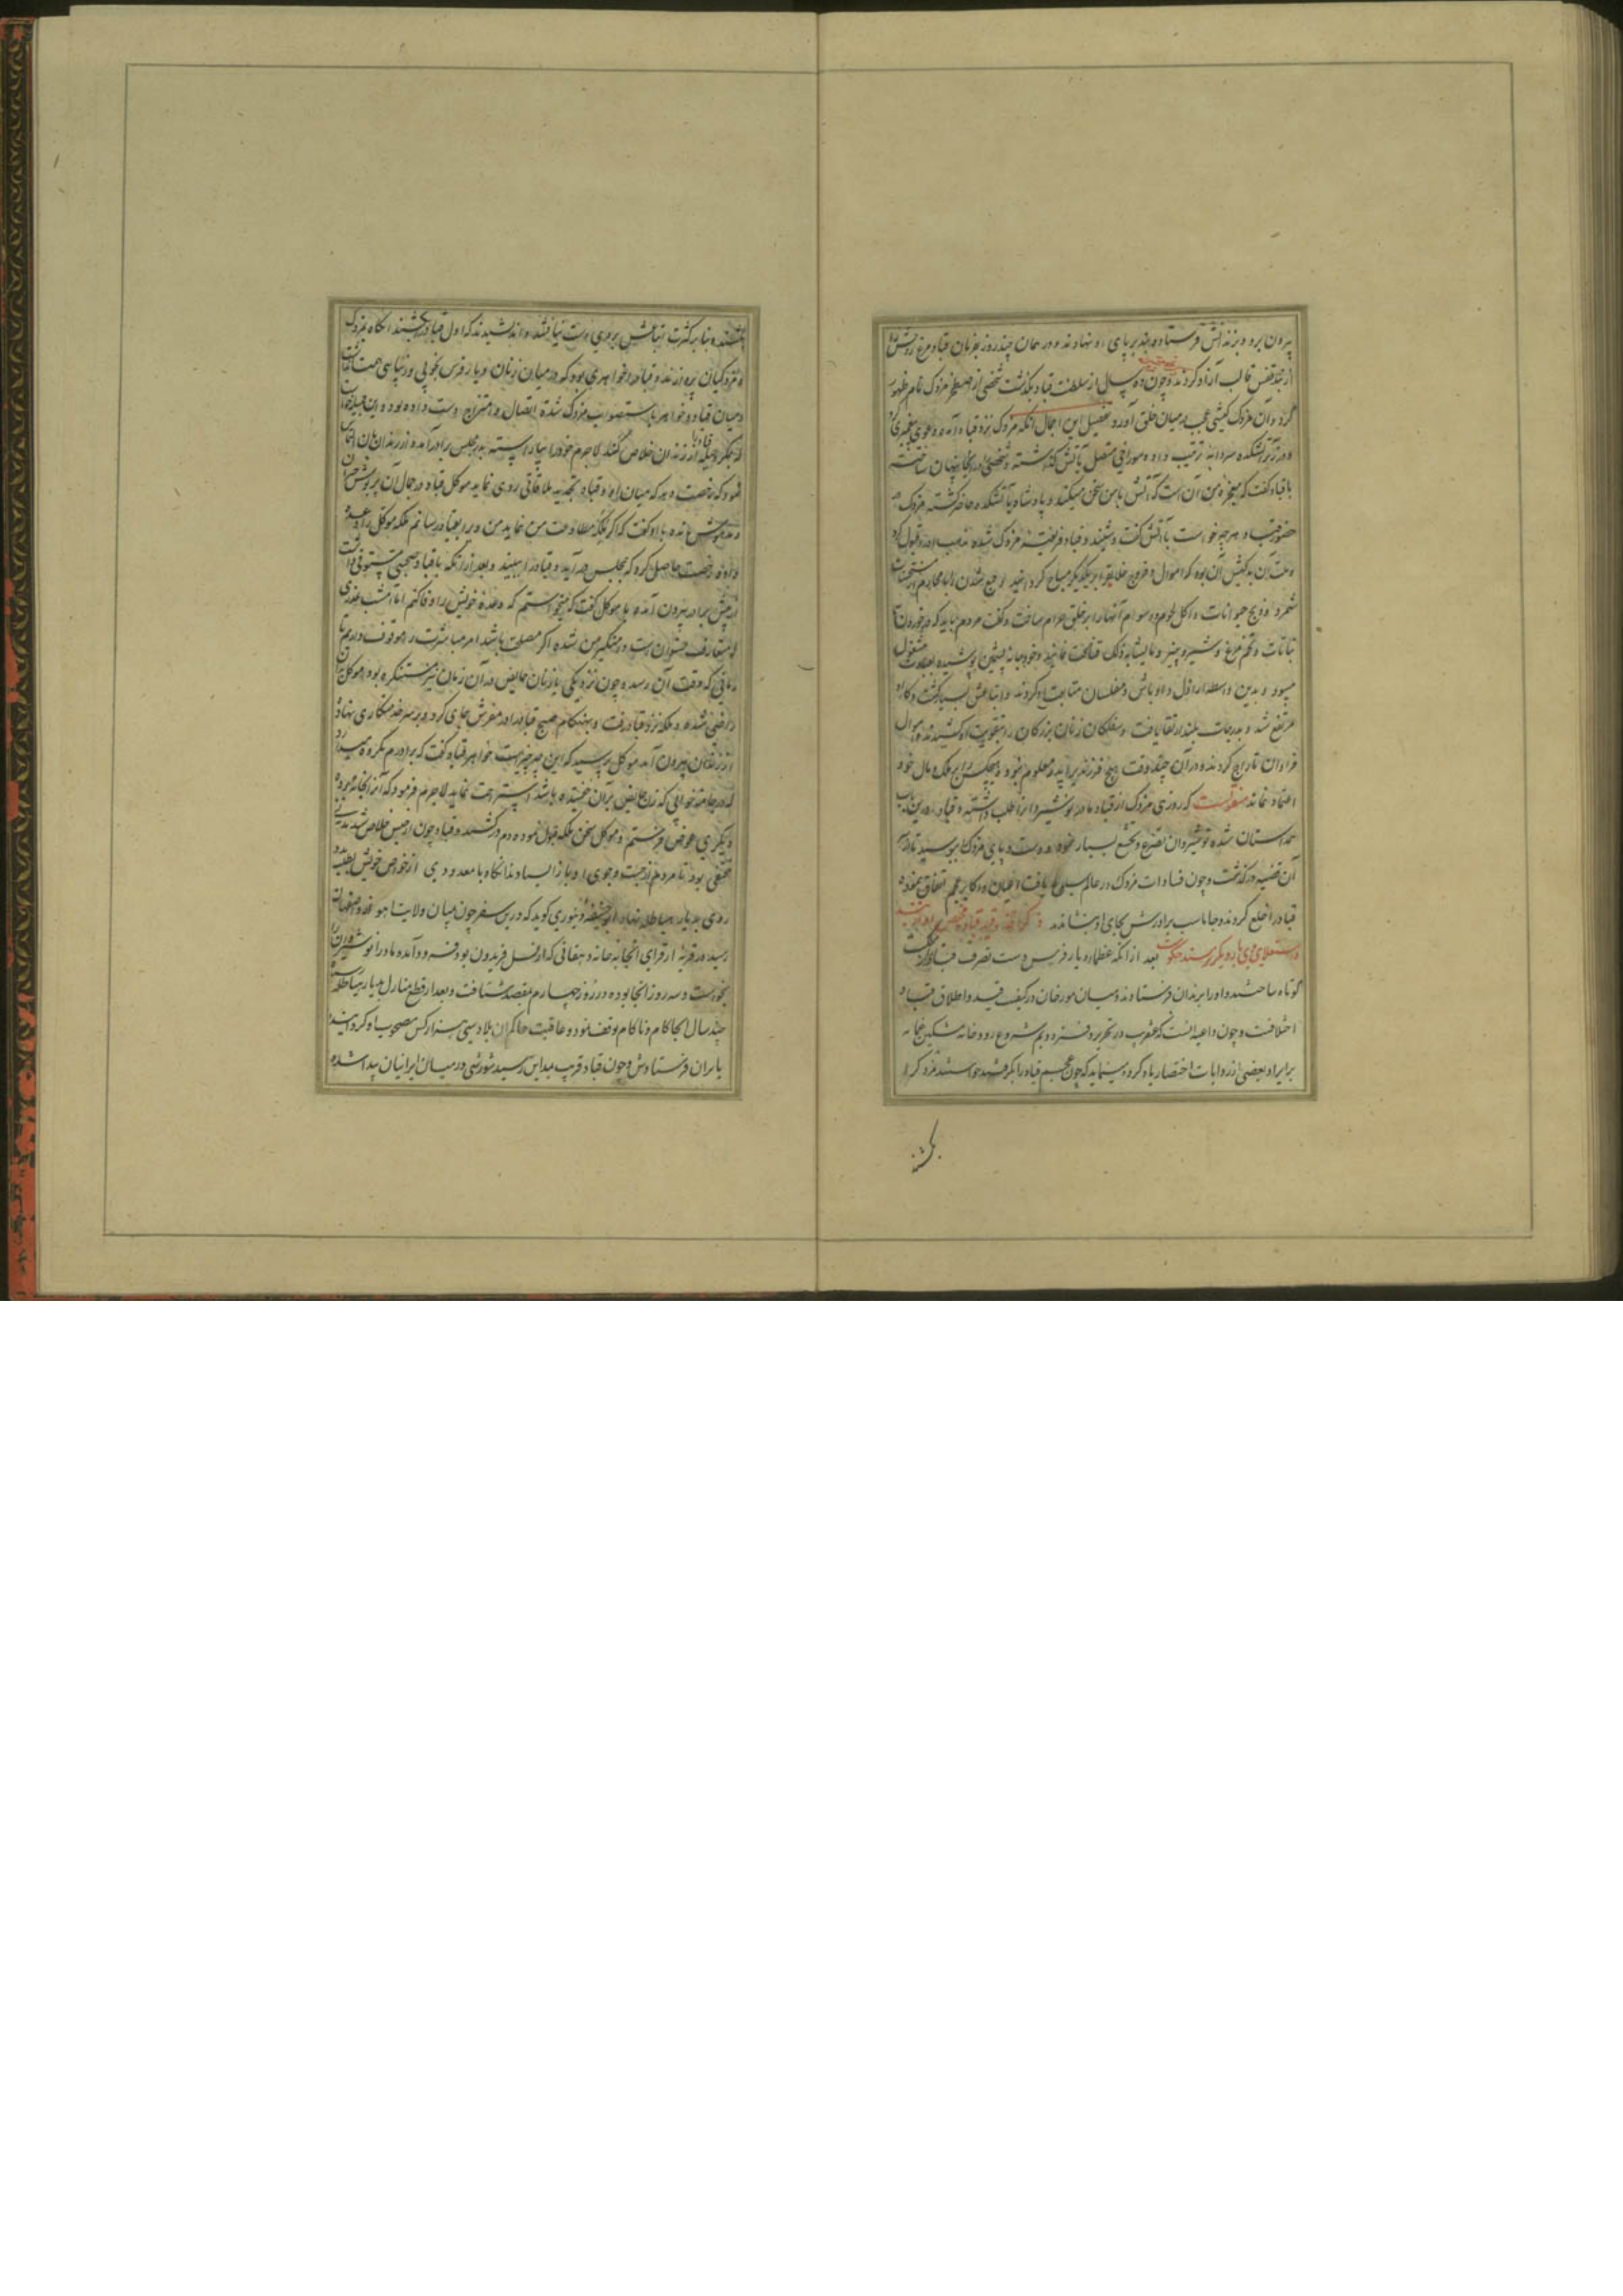 بیرون برد و بزندانش فرستاده بند بر پای او نهادند و در همان چند روز بفرمان قباد مرغ روحش را
از تنگ قفس قالب آزاد کردند و چون ده سال از سلطنت قباد بگذشت شخصی از اصطخر مزدک نام ظهور
کرد و آن مزدک کیشی عجب در میان خلق آورد تفصیل این اجمال آنکه مزدک نزد قباد آمده دعوی پیغمبری کرد
و در زیر آتشکده سردابه ترتیب داده سوراخی متصل بآتش گذاشته و شخصی را در آنجا پنهان ساخته
با قباد گفت که معجزه من آن است که آتش با من سخن میکند و پادشاه بآتشکده حاضر گشته مزدک در
حضور قباد هر چه خواست بآتش گفت و شنید و قباد فریفته مزدک شده مذهب او را قبول کرد
و ملت آن بدکیش آن بود که اموال و فروج خلایق را بر یکدیگر مباح گردانید و جمع شدن با محارم از مستحسنات
شمرد و ذبح حیوانات و اکل لحوم و دسوم آنها را بر خلق حرام ساخت و گفت مردم باید که در خوردن با
نباتات و تخم مرغ و شیر و پنیر و ما یشابه ذلک قناعت نمایند و خود جامه پشمین پوشیده بعبادت مشغول
میبود و بدین واسطه اراذل و اوباش و مفلسان متابعت او کردند و اتباعش بسیار گشت و کار او
مرتفع شد و بدرجات بلند ارتقا یافت و سفلگان زنان بزرگان را بتقویت او کشیدند و اموال
فراوان تاراج کردند و در آن چند وقت هیچ فرزند پدید معلوم نبود و هیچکس را بر ملک و مال خود
اعتماد نماند منقولست که روزی مزدک از قباد مادر نوشیروان را طلب داشته و قباد درین باب
همداستان شده نوشیروان تضرع و تخشع بسیار نموده دست و پای مزدک ببوسید تا از سر
آن قضیه درگذشت و چون فسادات مزدک در عالم سمر یافت اعیان و اکابر عجم اتفاق نموده
قباد را خلع کردند و جاماسب برادرش بجای او بنشاندند ذکر گرفتن و قید قباد و مخلص
و استعلای وی بار دیگر بر مسند حکومت بعد از آنکه عظماء دیار فرس دست تصرف قباد از
کوتاه ساختند و او را بزندان فرستادند و میان مورخان در کیفیت قید و اطلاق قباد
اختلافست و چون داعیه آنست که عنقریب در تحریر دفتر دویم شروع رود خامه مشکین عمامه
بر ایراد بعضی از روایات اختصار یاد کرده مینماید که چون عجم قباد را بگرفتند خواستند مزدک را
بکشند
بکشند و بنا بر کثرت اتباعش بر وی دست نیافتند و اندیشیدند که اول قباد را بکشند آنگاه بمزدک
و مزدکیان پردازند و قباد را خواهری بود که در میان زنان دیار فرس بخوبی و زیبایی
و میان قباد و خواهر باستصواب مزدک شده اتصال و امتزاج دست داده بود و این جمیله خواست
که بمکر و حیله قباد را از زندان خلاص کند لاجرم خود را بیاراسته بدر محبس برادر آمده از زندانبان التماس
نمود که رخصت دهد که میان او و قباد تجدید ملاقاتی روی نماید موکل قباد در جمال آن پریوش حیران
و مدهوش مانده با او گفت که اگر ملکه مطاوعت من نماید من وی را بقباد رسانم ملکه موکل را وعده
داده رخصت حاصل کرد که بمجلس درآید و قباد را ببیند و بعد از آنکه با قباد صحبتی مستوفی داشت
از پیش برادر بیرون آمده با موکل گفت که میخواستم که وعده خویش را وفا کنم اما امشب عذری
که متعارف نسوان است دامنگیر من شده اگر مصلحت باشد امر مباشرت را موقوف داریم تا
زمانی که وقت آن رسد چون نزدیکی با زنان حایض در آن زمان نیز مستنکره بود موکل بدان
راضی شده و ملکه نزد قباد رفت و بهنگام صبح قباد را در مفرش جای کرد و بر سر خدمتکاری نهاد
از زندان بیرون آمد موکل پرسید که این چه چیز است خواهر قباد گفت که برادرم مکروه میدارد
که در جامه خوابی که زن حایض بر آن خفته باشد استراحت نماید لاجرم فرمود که آن را بخانه برده
دیگری عوض فرستم و موکل سخن ملکه قبول نموده دم درکشید و قباد چون از حبس خلاص شد مدتی
مختفی بود تا مردم از جست و جوی او باز ایستادند آنگاه با معدودی از خواص خویش
روی بدیار هیاطله نهاد ابوحنیفه دینوری گوید که درین سفر چون میان ولایت اهواز و اصفهان
رسید در قریه از قرای آنجا بخانه دهقانی که از نسل فریدون بود فرود آمده مادر انوشیروان را
بخواست و سه روز آنجا بوده در روز چهارم بمقصد شتافت و بعد از قطع منازل بدیار هیاطله
چند سال آنجا کام و ناکام توقف نمود و عاقبت حاکم آن بلاد سی هزار کس مصحوب او گردانیده
بایران فرستادش و چون قباد قریب بمداین رسید شورشی در میان ایرانیان پیدا شده